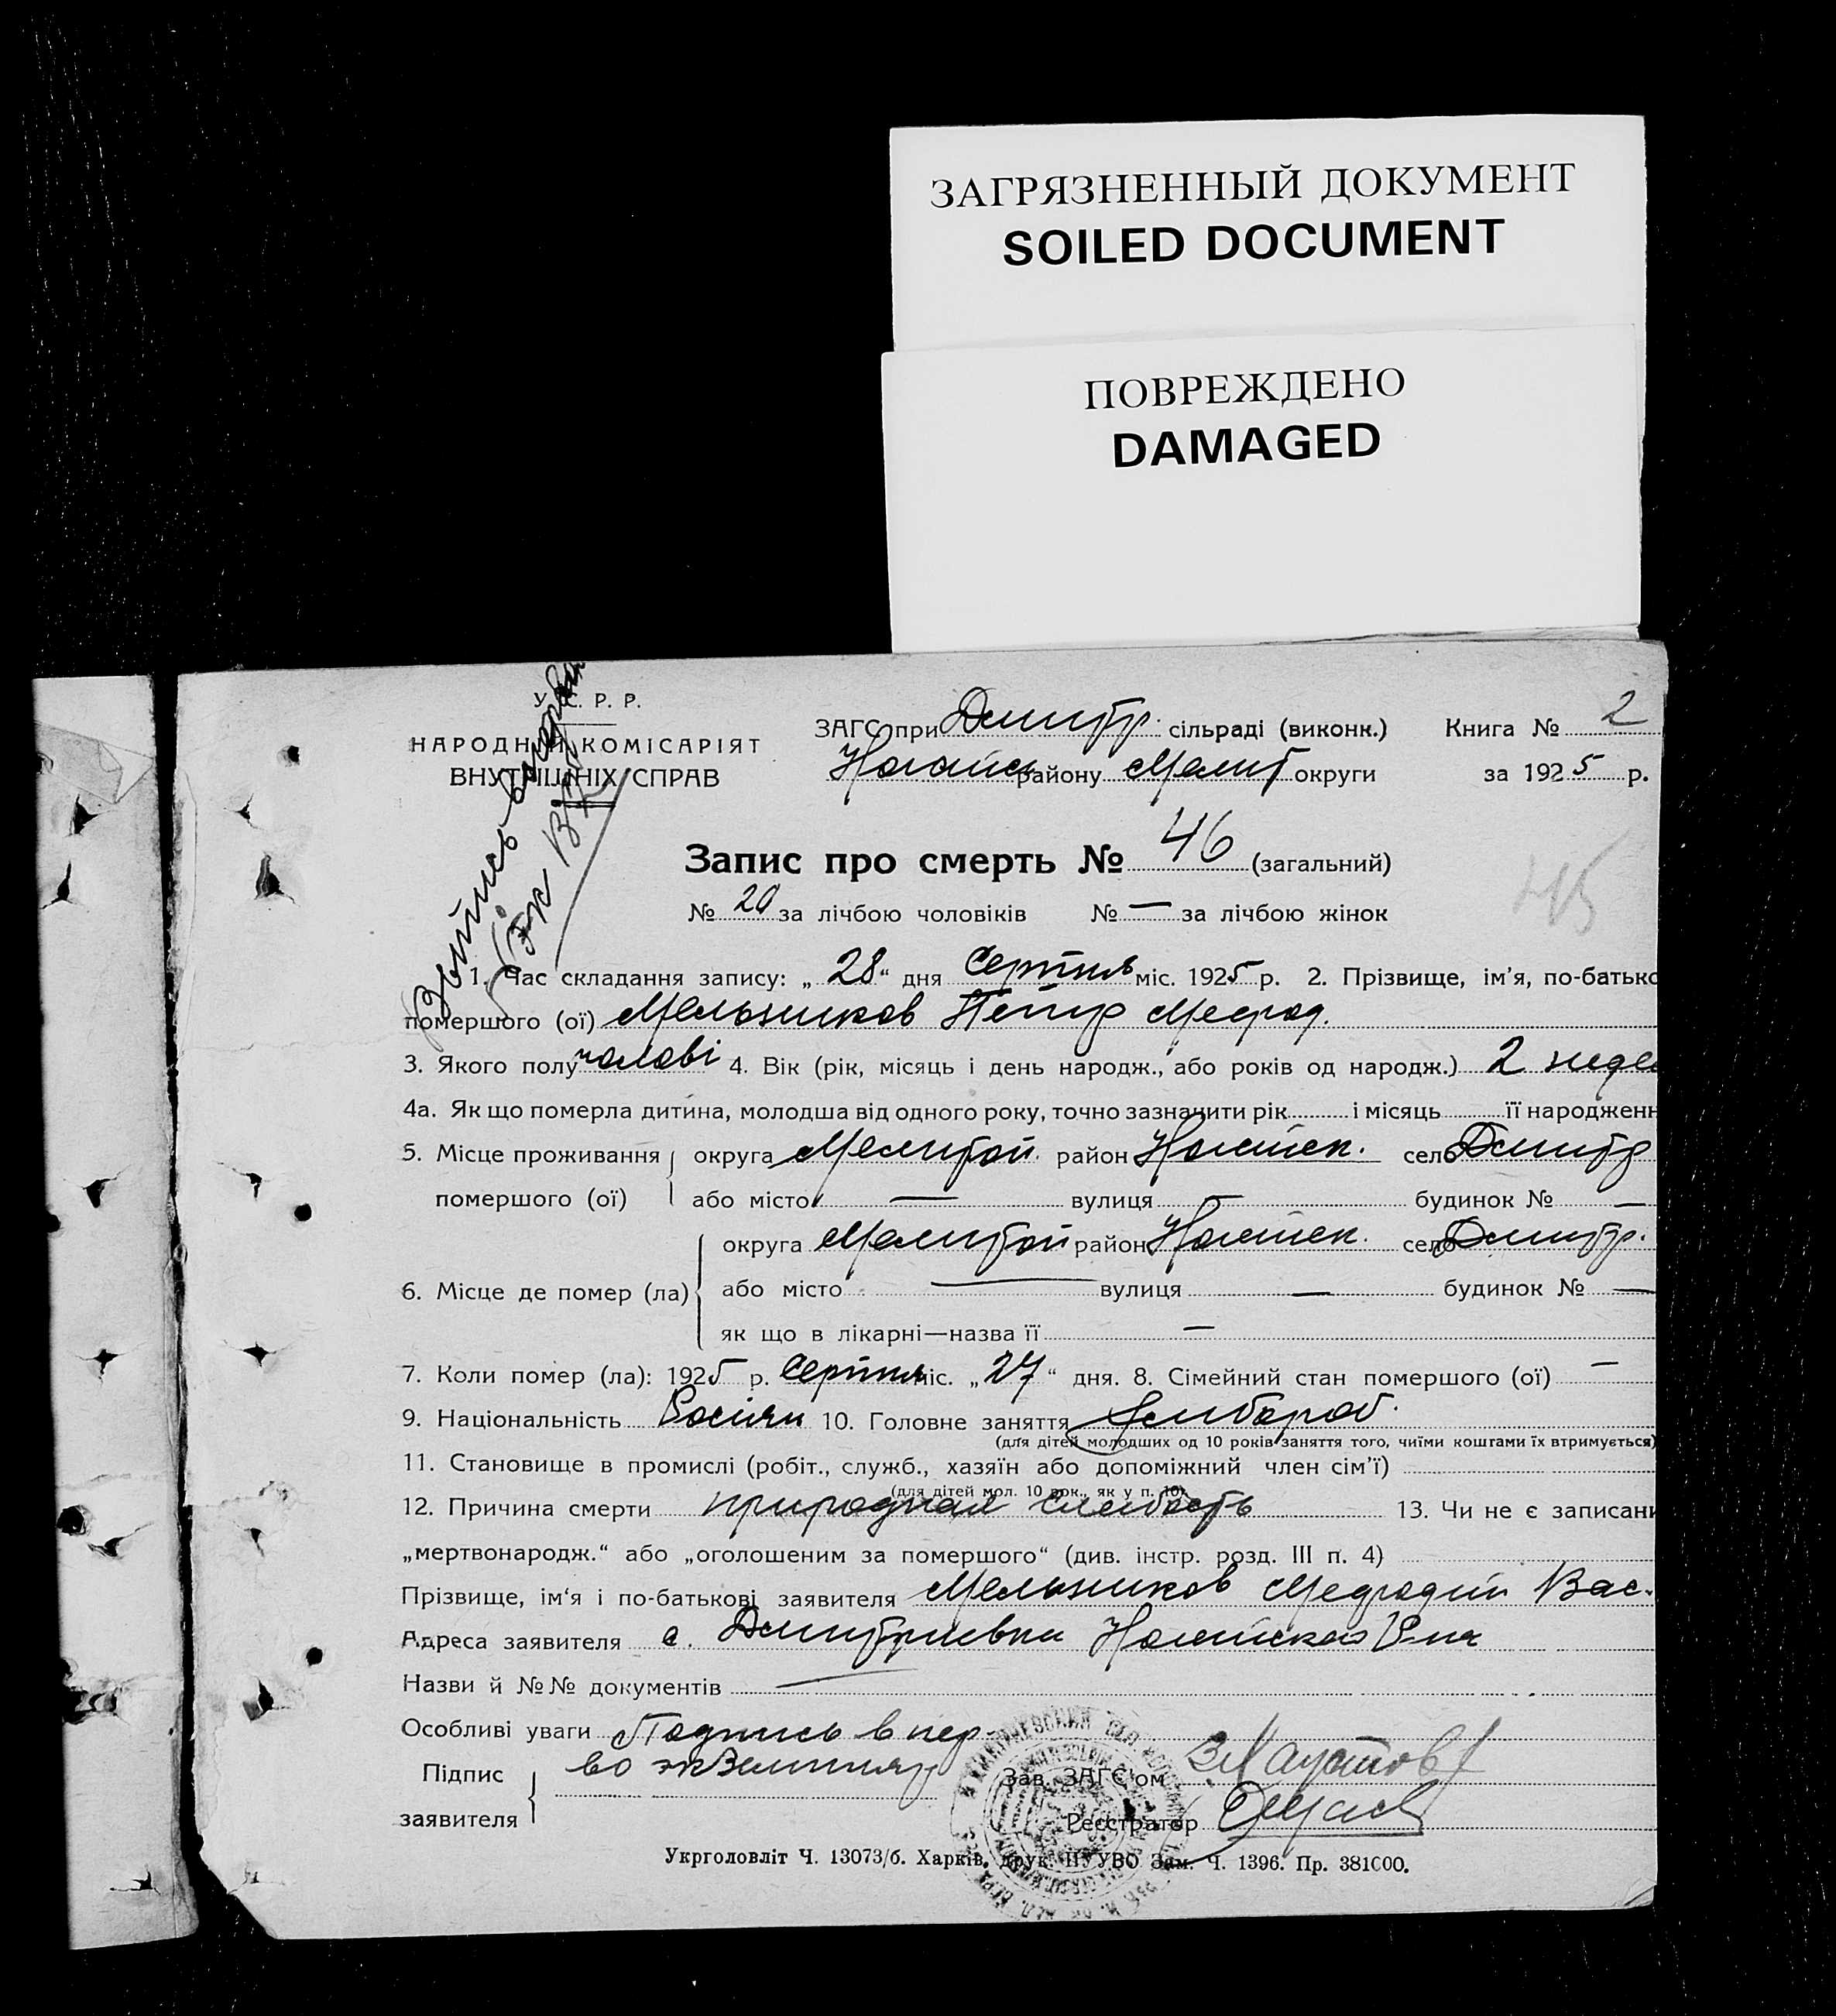 ЗАГРЯЗНЕННЫЙ ДОКУМЕНТ
SOILED DOCUMENT
ПОВРЕЖДЕНО
DAMAGED
У. С. Р. Р.
НАРОДНІЙ КОМІСАРІЯТ
ВНУТРІШНІХ СПРАВ
ЗАГС при Дмитр. сільраді (виконк.) Книга № 2
Ногайськ району Мелит округи за 1925 р.
Запис про смерть № 46 (загальний)
№ 20 за лічбою чоловіків № — за лічбою жінок
45
1. Час складання запису: „28“ дня Серпня міс. 1925 р. 2. Прізвище, ім'я, по-батько
помершого (ої) Мельников Петр Мефод.
3. Якого полу чолові 4. Вік (рік, місяць і день народж., або років од народж.) 2 неде
4а. Як що померла дитина, молодша від одного року, точно зазначити рік і місяць її народженн
5. Місце проживання округа Мелитой район Ногайск. село Дмитр
помершого (ої) або місто — вулиця — будинок № —
округа Мелитой район Ногайск. село Дмитр.
6. Місце де помер (ла) або місто — вулиця — будинок № —
як що в лікарні—назва її —
7. Коли помер (ла): 1925 р. Серпня міс. „27“ дня. 8. Сімейний стан помершого (ої) —
9. Національність Росіян 10. Головне заняття Хлибороб.
(для дітей молодших од 10 років заняття того, чиїми коштами їх втримується)
11. Становище в промислі (робіт., служб., хазяїн або допоміжний член сім'ї)
(для дітей мол. 10 рок., як у п. 10)
12. Причина смерти природная слабость 13. Чи не є записани
„мертвонародж.“ або „оголошеним за помершого“ (див. інстр. розд. III п. 4)
Прізвище, ім'я і по-батькові заявителя Мельников Мефодий Вас.
Адреса заявителя с. Дмитриевка Ногайского Р-на
Назви й №№ документів —
Особливі уваги Подпись в пер
во экземпляр
Підпис
заявителя
Зав. ЗАГС'ом
Реєстратор
Укрголовліт Ч. 13073/б. Харків, друк. ПУУВО Зам. Ч. 1396. Пр. 381000.